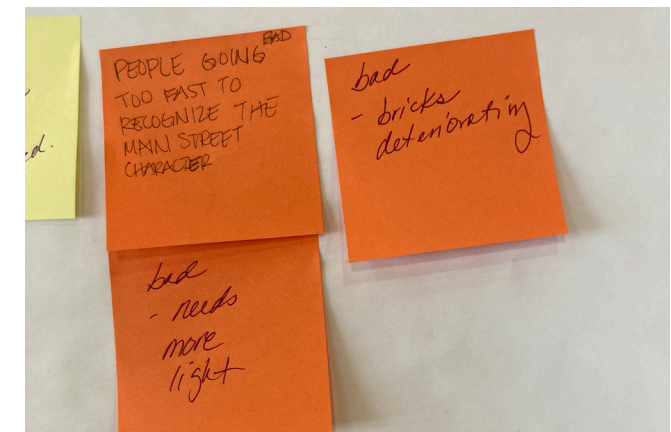 BAD
PEOPLE GOING
TOO FAST TO
RECOGNIZE THE
MAIN STREET
CHARACTER
bad
- bricks
deteriorating
bad
- needs
more
light
ed.